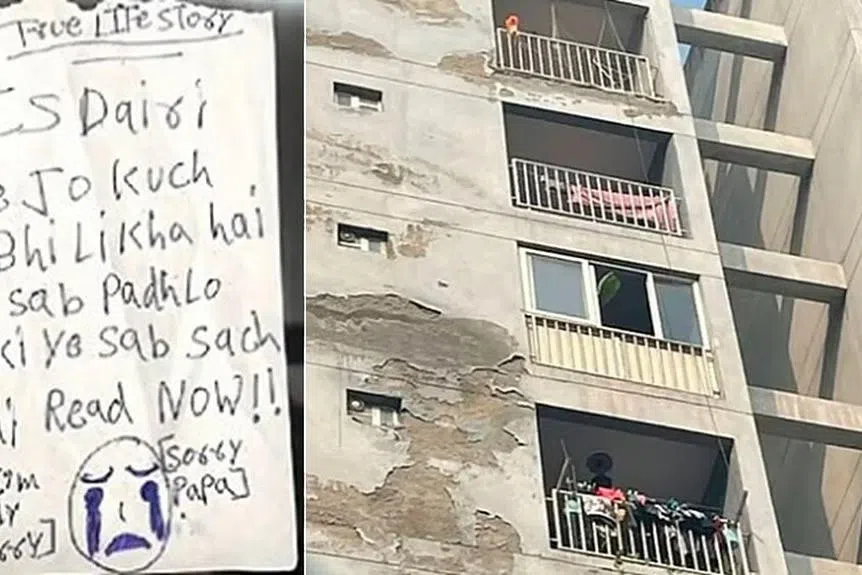 TRUE LIFE STORY
ES Dairi
Jo Kuch
Bhi Likha hai
sab Padhlo
ye sab sach
Read NOW!!
[Sorry
Papa]